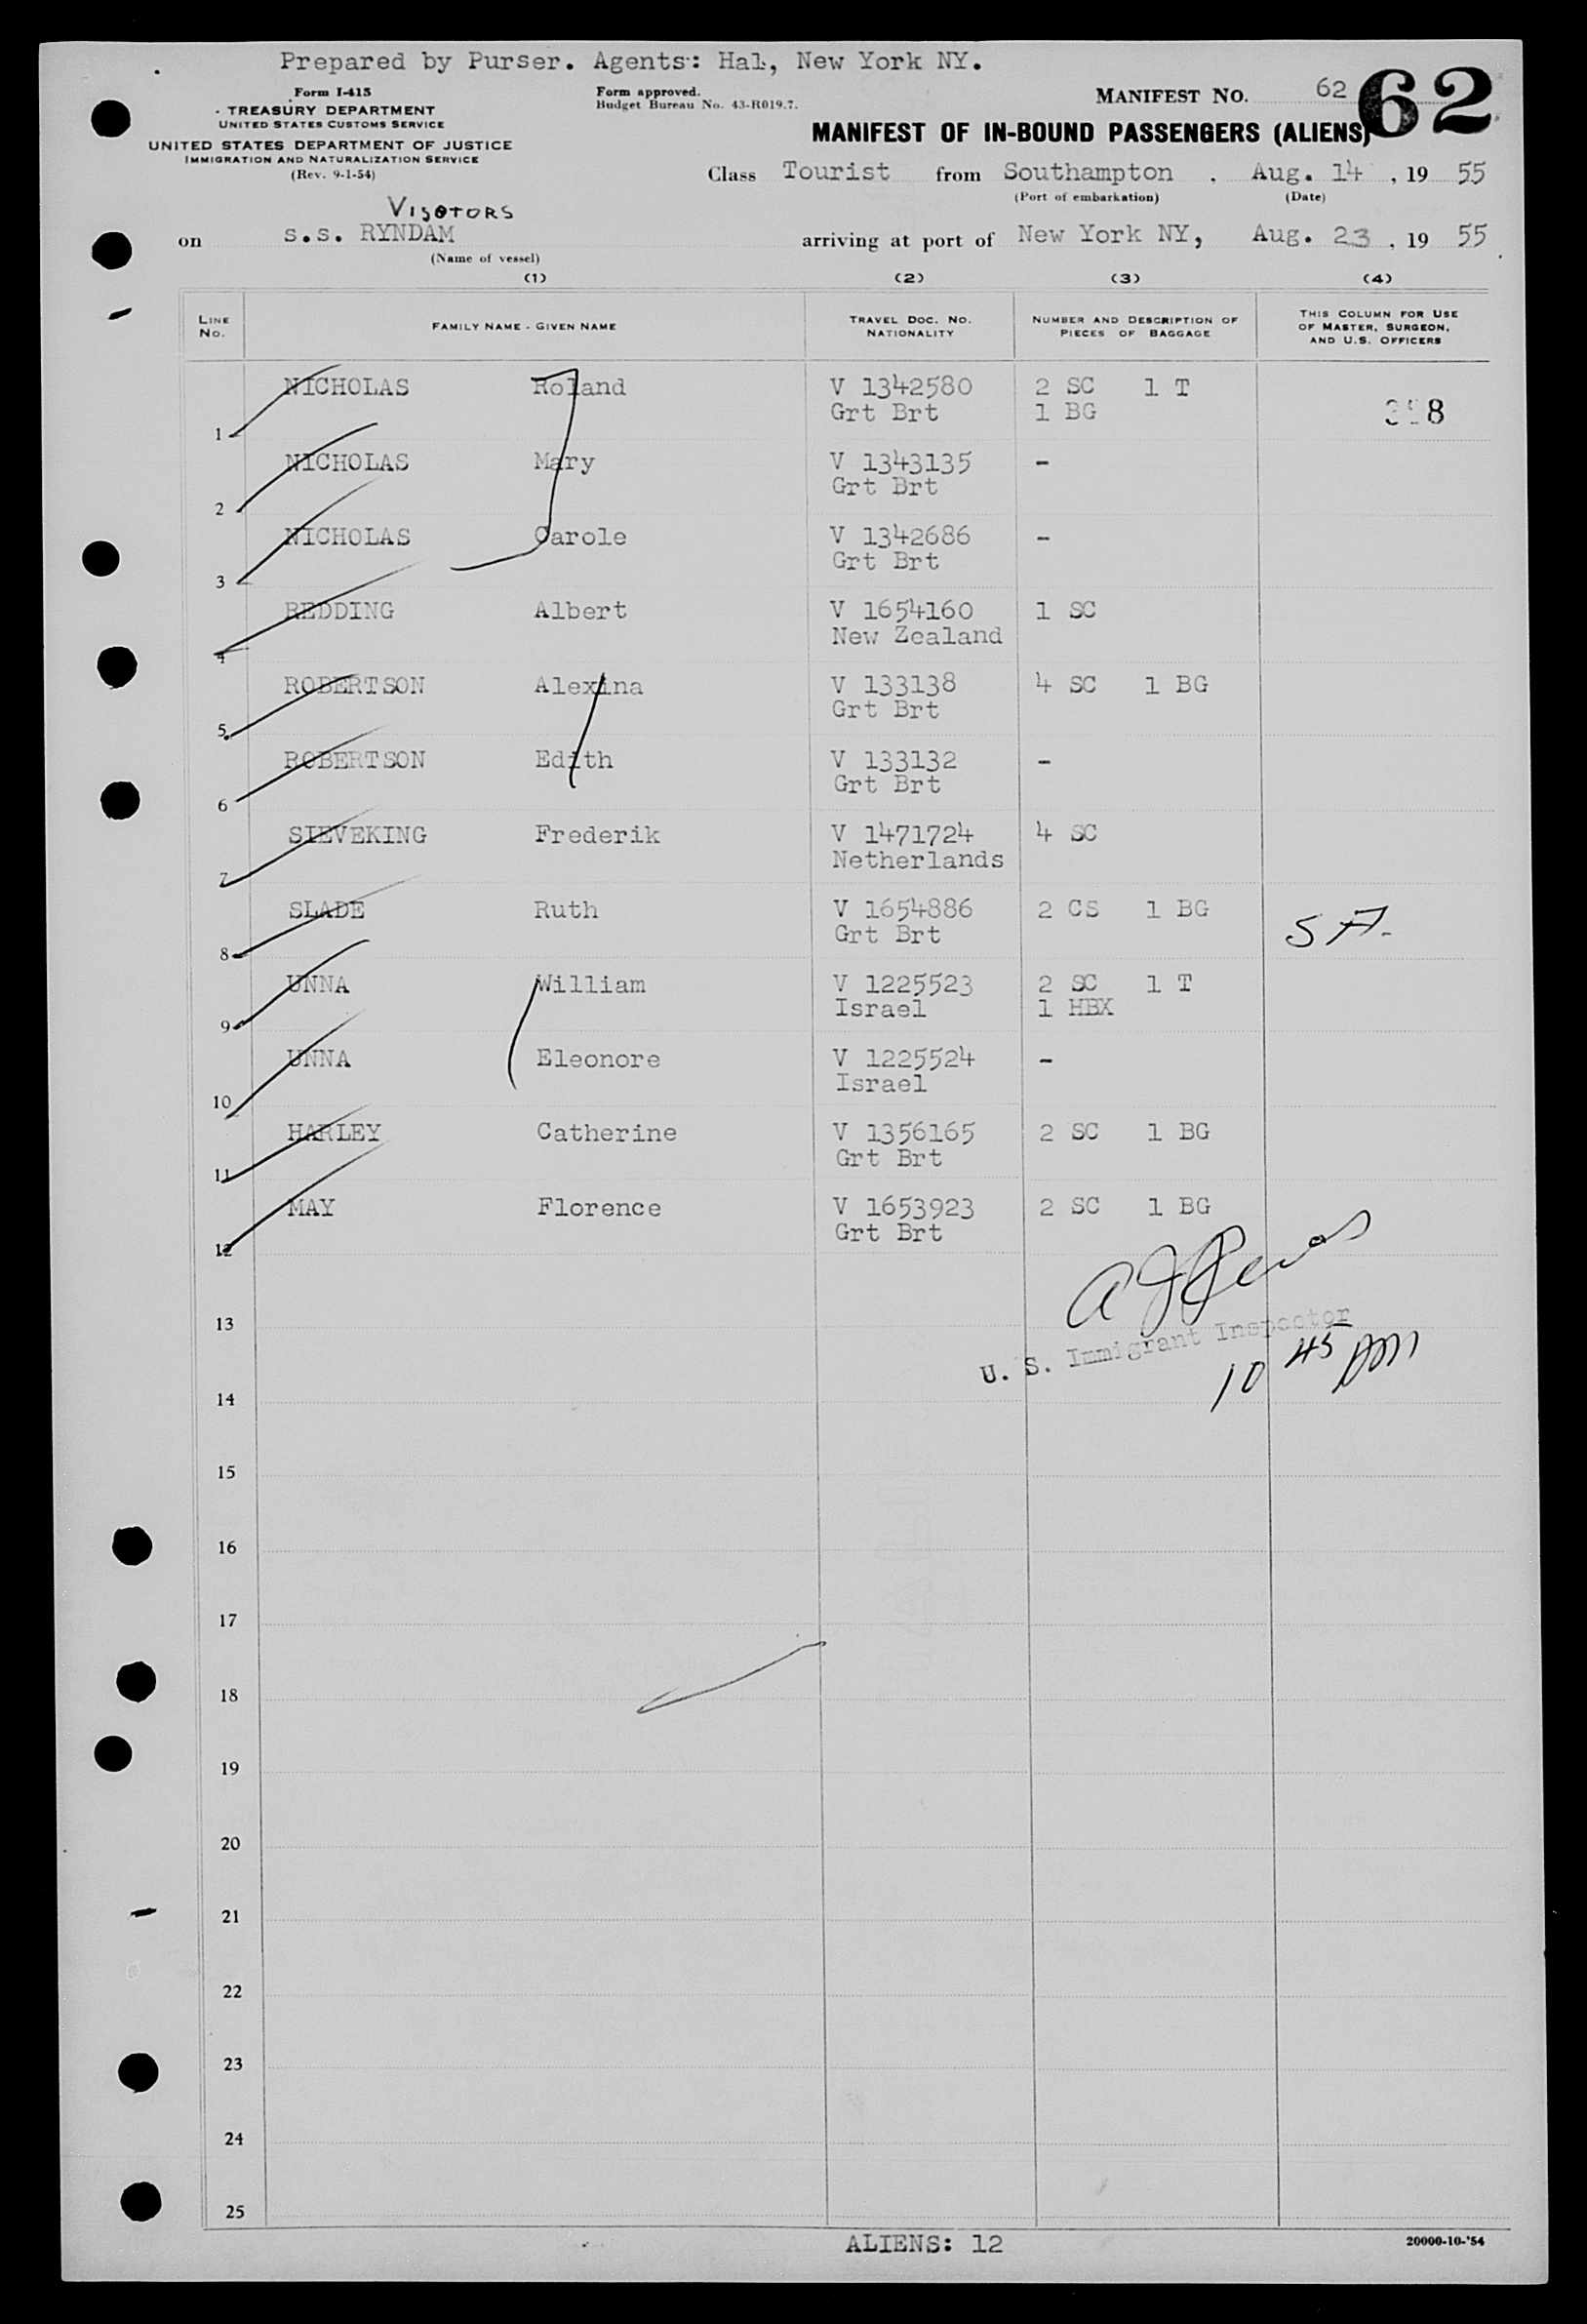 Prepared by Purser. Agents: Hal, New York NY.
Form I-415
TREASURY DEPARTMENT
UNITED STATES CUSTOMS SERVICE
UNITED STATES DEPARTMENT OF JUSTICE
IMMIGRATION AND NATURALIZATION SERVICE
(Rev. 9-1-54)
Form approved.
Budget Bureau No. 43-R019.7.
MANIFEST NO. 62
62
MANIFEST OF IN-BOUND PASSENGERS (ALIENS)
Class Tourist from Southampton , Aug. 14 , 19 55
(Port of embarkation) (Date)
VISOTORS
on s.s. RYNDAM arriving at port of New York NY, Aug. 23 , 19 55
(Name of vessel)
(1) (2) (3) (4)
LINE NO. FAMILY NAME - GIVEN NAME TRAVEL DOC. NO. NATIONALITY NUMBER AND DESCRIPTION OF PIECES OF BAGGAGE THIS COLUMN FOR USE OF MASTER, SURGEON, AND U.S. OFFICERS
NICHOLAS Roland V 1342580 2 SC 1 T
1 Grt Brt 1 BG 8
NICHOLAS Mary V 1343135 -
2 Grt Brt
NICHOLAS Carole V 1342686 -
3 Grt Brt
REDDING Albert V 1654160 1 SC
4 New Zealand
ROBERTSON Alexina V 133138 4 SC 1 BG
5 Grt Brt
ROBERTSON Edith V 133132 -
6 Grt Brt
SIEVEKING Frederik V 1471724 4 SC
7 Netherlands
SLADE Ruth V 1654886 2 CS 1 BG
8 Grt Brt
UNNA William V 1225523 2 SC 1 T
9 Israel 1 HBX
UNNA Eleonore V 1225524 -
10 Israel
HARLEY Catherine V 1356165 2 SC 1 BG
11 Grt Brt
MAY Florence V 1653923 2 SC 1 BG
12 Grt Brt
13
U. S. Immigrant Inspector
10 45 AM
14
15
16
17
18
19
20
21
22
23
24
25
ALIENS: 12
20000-10-'54